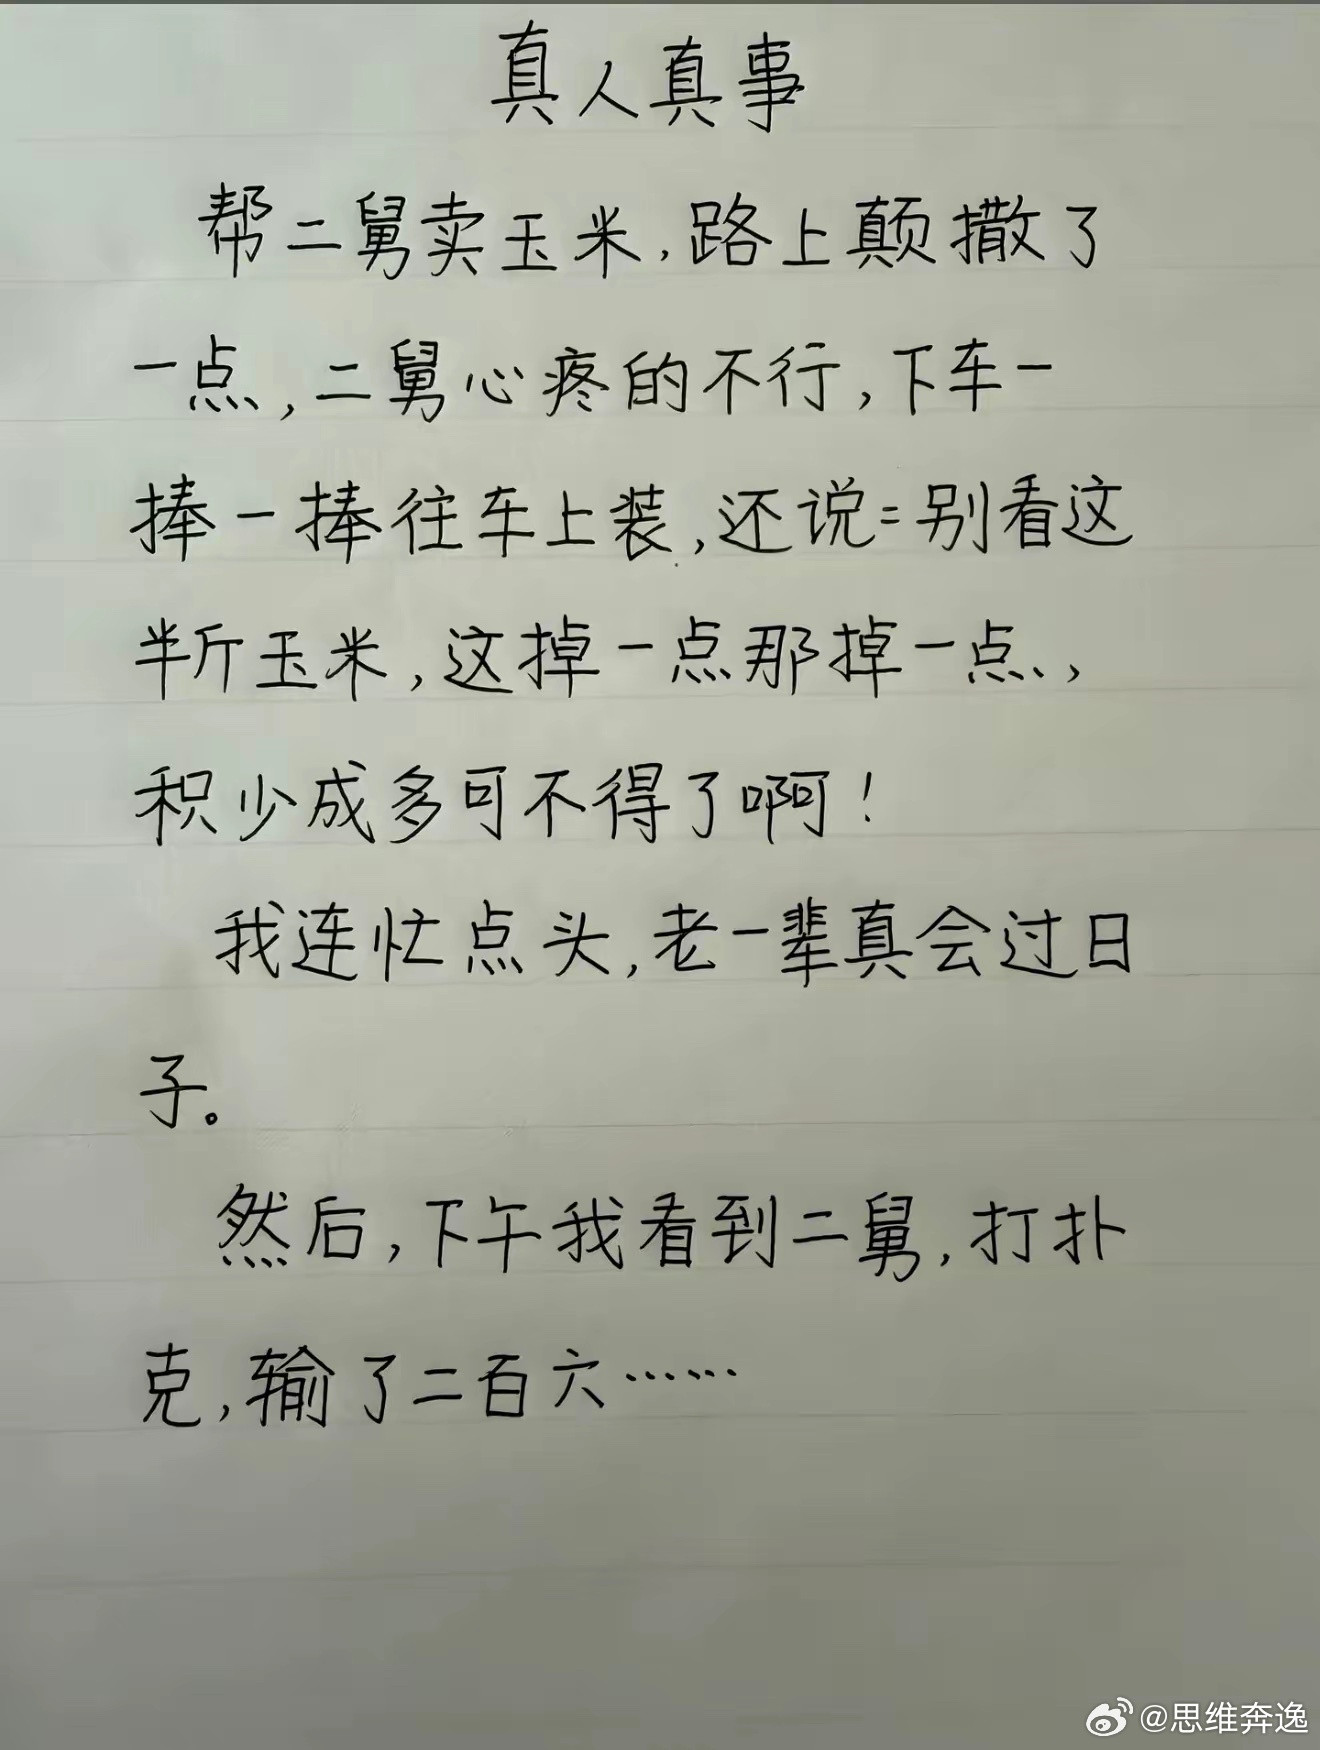 真人真事
帮二舅卖玉米,路上颠撒了
一点,二舅心疼的不行,下车一
捧一捧往车上装,还说:别看这
半斤玉米,这掉一点那掉一点,
积少成多可不得了啊!
我连忙点头,老一辈真会过日
子。
然后,下午我看到二舅,打扑
克,输了二百六……
@思维奔逸